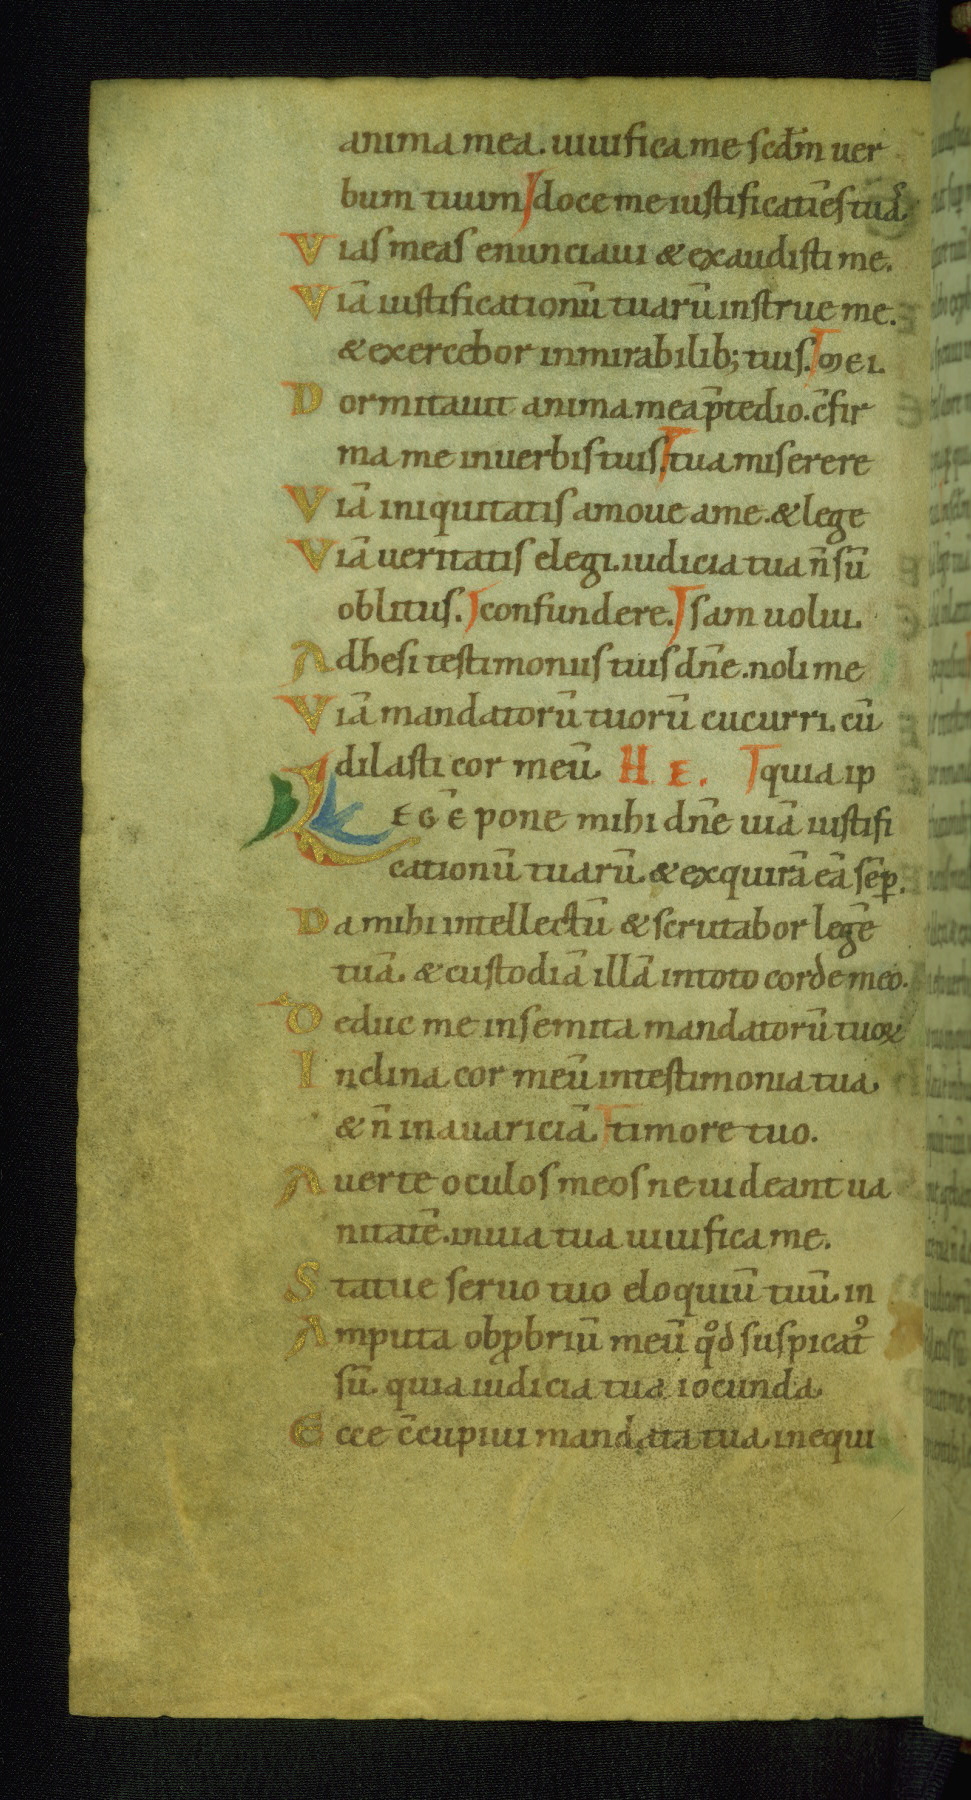 anima mea. uiuifica me scdm̄ uer
bum tuum doce me iustificatiēs tuas
Vias meas enunciaui & exaudisti me.
Viā iustificationū tuarū instrue me.
& exercebor in mirabilib; tuis. mei.
Dormitauit anima mea p̄ tedio. c̄fir
ma me in uerbis tuis. tua miserere
Viā iniquitatis amoue a me. & lege
Viā ueritatis elegi. iudicia tua ñ sū
oblitus. confundere. sam uolui.
Adhesi testimoniis tuis dn̄e. noli me
Viā mandatorū tuorū cucurri. cū
dilasti cor meū HE. quia ip
LEGĒ pone mihi dn̄e uiā iustifi
cationū tuarū. & exquirā eā sēp.
Da mihi intellectū & scrutabor legē
tuā. & custodiā illā in toto corde meo.
Deduc me in semita mandatorū tuoꝝ
Inclina cor meū in testimonia tua.
& ñ in auariciā. timore tuo.
Auerte oculos meos ne uideant ua
nitatē. in uia tua uiuifica me.
Statue seruo tuo eloquiū tuū. in
Amputa obꝓbriū meū qd̊ suspicat᷒
sū. quia iudicia tua iocunda.
Ecce c̄cupiui mandata tua. in equi